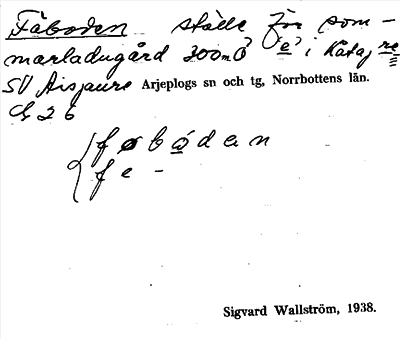 Fäboden ställe för som-
marladugård 300 m Ö "e" i Kataj re
SV Aisjaure Arjeplogs sn och tg, Norrbottens län.
C 26
føbodan
fe -
Sigvard Wallström, 1938.